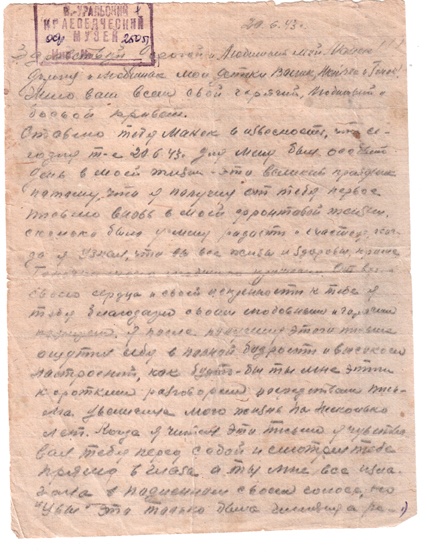 20.6.43г.
В-УРАЛЬСКИЙ
КРАЕВЕДЧЕСКИЙ
МУЗЕЙ
Здравствуй Дорогой и Любимый Мой Манек!!!
и любимые мои детки
Шлю вам всем свой горячий, Любимый и
боевой привет.
Ставлю тебя Манек в известность, что се-
годня т-е 20.6.43г. для меня был особый
день в моей жизни - эта великий праздник
потому, что я получил от тебя первое
письмо вновь в моей фронтовой жизни,
сколько было у меня радости и счастья, ког-
да я узнал, что вы все живы и здоровы,
От всего
своего сердца и своей искренности к тебе я
тебя благодарю своим любовным и горячим
Я после получения этого письма
ощутил себя в полной бодрости и высоком
настроении, как будто-бы ты мне этим
коротким разговором посредством пись-
ма увеличила мою жизнь на несколько
лет. Когда я читал эта письмо я чувство
вал тебя перед собой и смотрел тебе
прямо в глаза а ты мне все
своим голосом, но
"Увы" эта только была